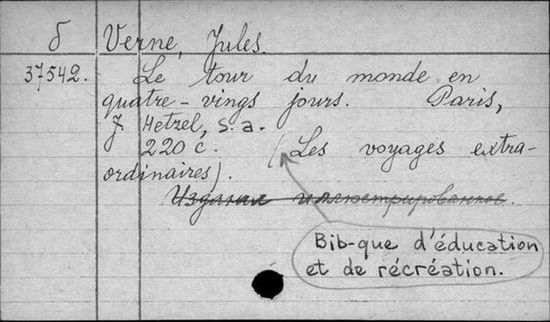 б Verne, Jules.
37542. Le tour du monde en
quatre-vings jours. Paris,
J. Hetzel, s. a.
220 c. (Les voyages extra-
ordinaires).
Издание иллюстрированное.
Bib-que d'éducation
et de récréation.